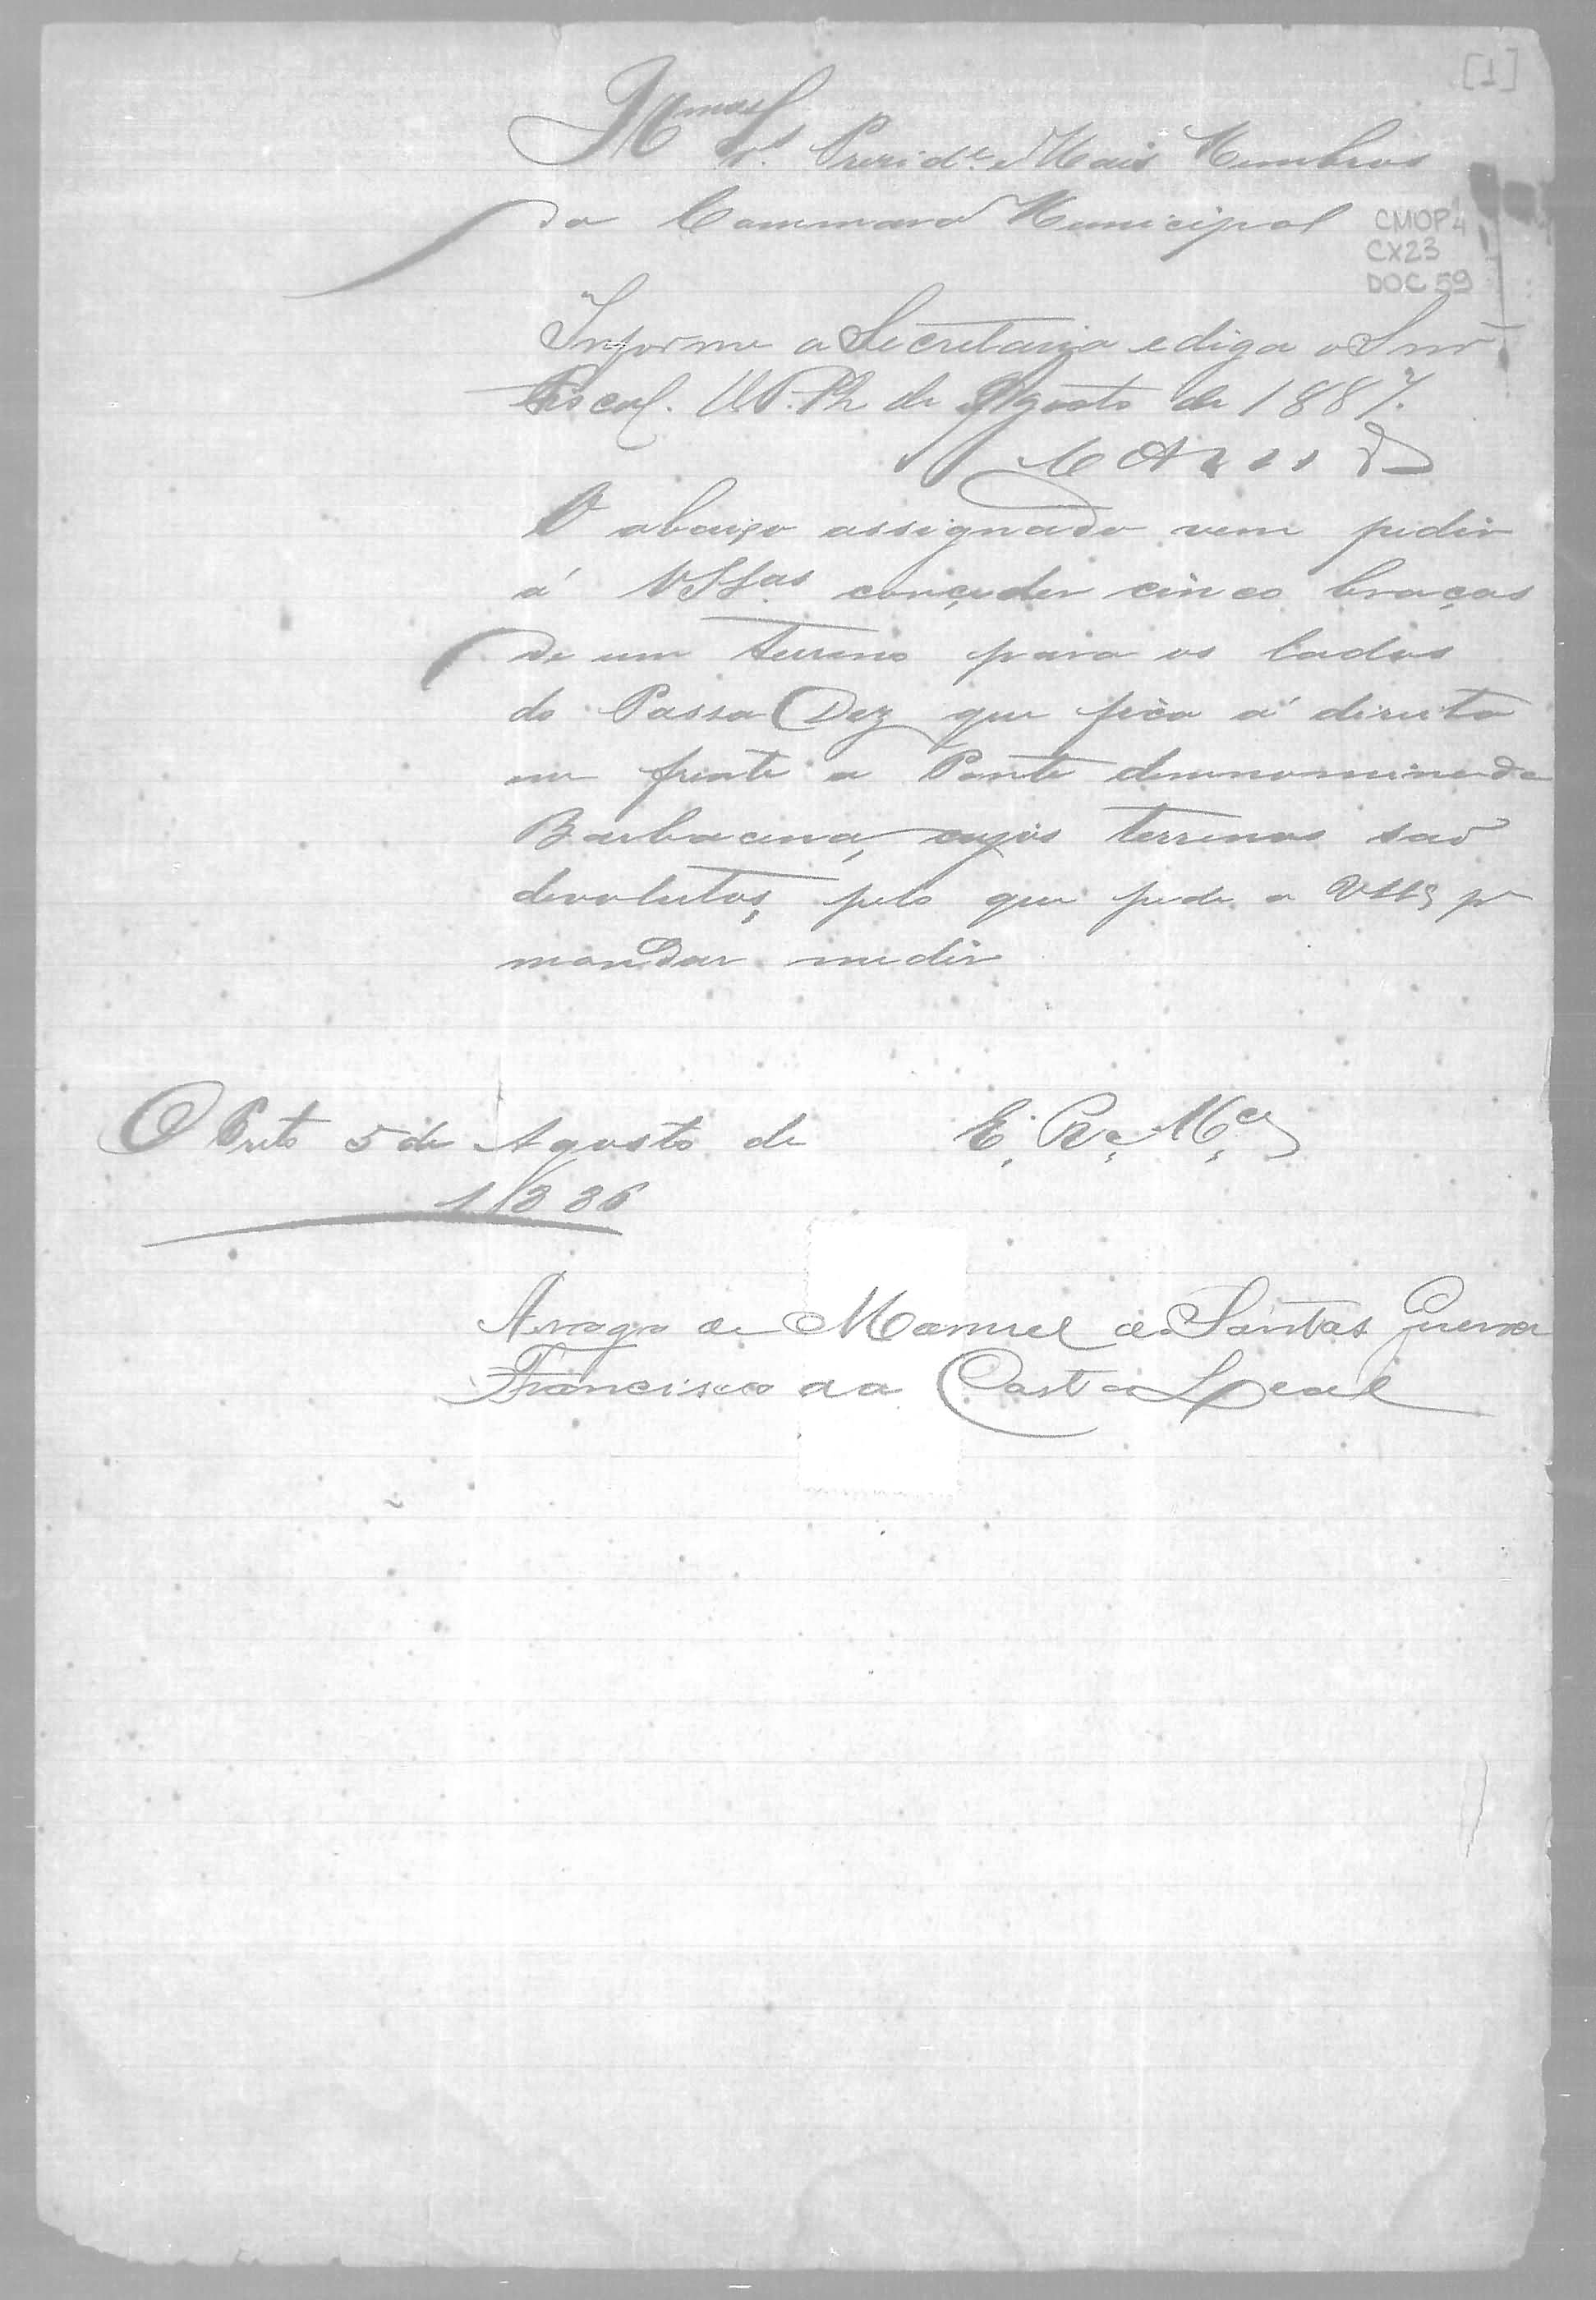 [1]
Illmos Srs. Presidte. e Mais Membros
da Cammara Municipal
CMOP4
CX23
DOC 59
Informe a Secretaria e diga o Snr
Fiscal. de Agosto de 1887.
O abaixo assignado vem pedir
á VSSas conçeder cinco braças
de um terreno para os lados
do Passa Dez que fica á direita
em frente a Ponte denominada
Barbacena, cujos terrenos saõ
devolutos, pelo que pede a VSSs pa
mandar medir
O Preto 5 de Agosto de
E. Re. Mce
1886
Arrogo de Manuel de Santos Guerra
Francisco da Costa Leal